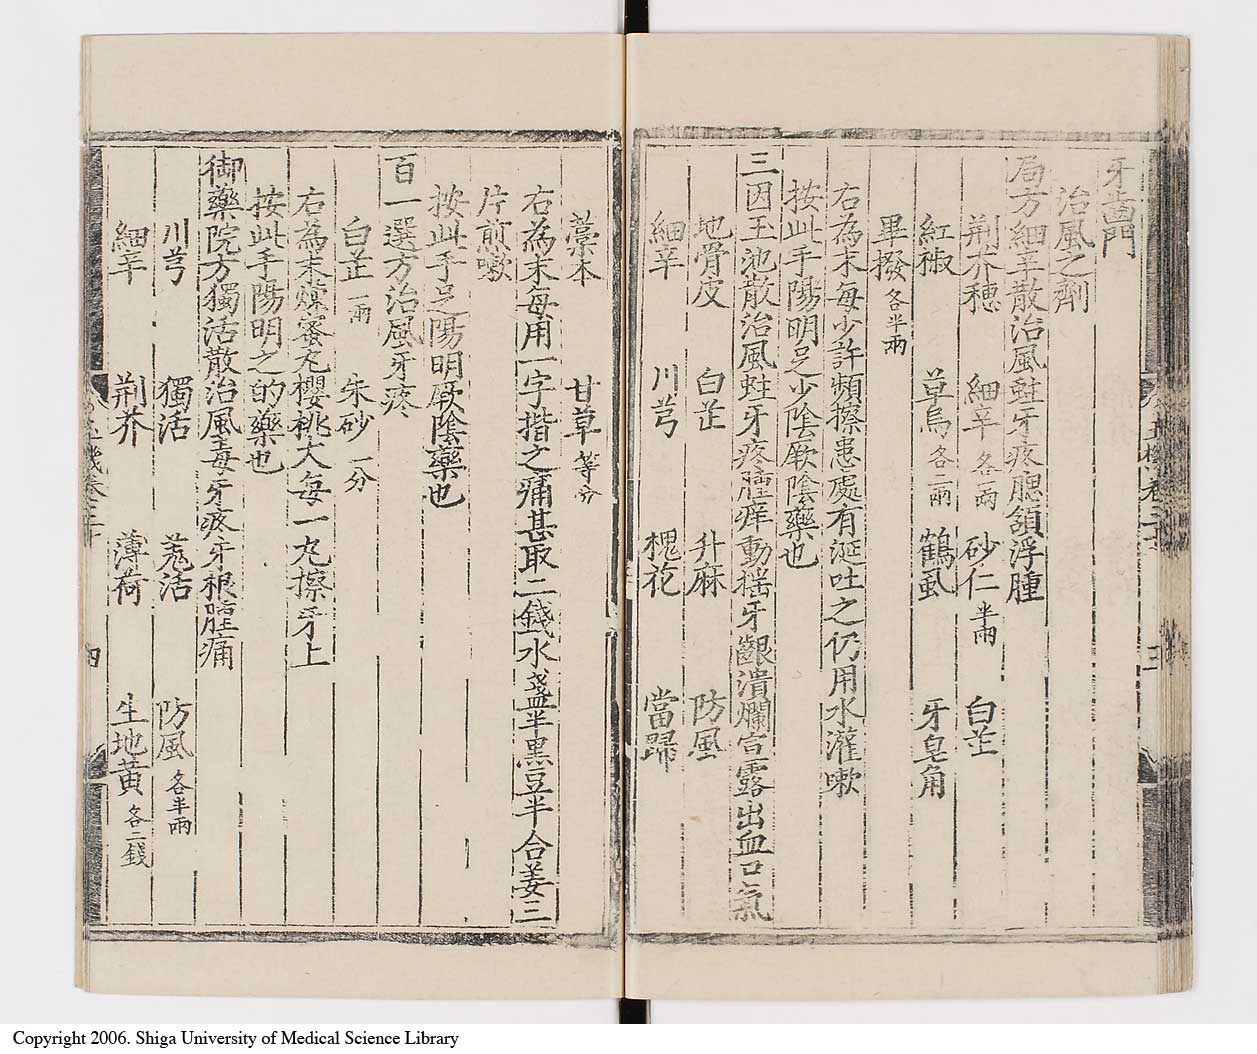 牙齒門
治風之劑
局方細辛散治風蛀牙疼腮頷浮腫
荊芥穗 細辛各一兩 砂仁半兩 白芷
紅椒 草烏各二兩 鶴虱 牙皂角
畢撥各半兩
右為末每少許頻擦患處有涎吐之仍用水灌嗽
按此手陽明足少陰厥陰藥也
三因玉池散治風蛀牙疼腫痒動搖牙齦潰爛宣露出血口氣
地骨皮 白芷 升麻 防風
細辛 川芎 槐花 當歸
藁本 甘草等分
右為末每用一字揩之痛甚取二錢水盞半黑豆半合姜三
片煎嗽
按此手足陽明厥陰藥也
百一選方治風牙疼
白芷一兩 朱砂一分
右為末煉蜜丸櫻桃大每一丸擦牙上
按此手陽明之的藥也
御藥院方獨活散治風毒牙疼牙根腫痛
川芎 獨活 羗活 防風各半兩
細辛 荊芥 薄荷 生地黃各二錢
四
Copyright 2006. Shiga University of Medical Science Library